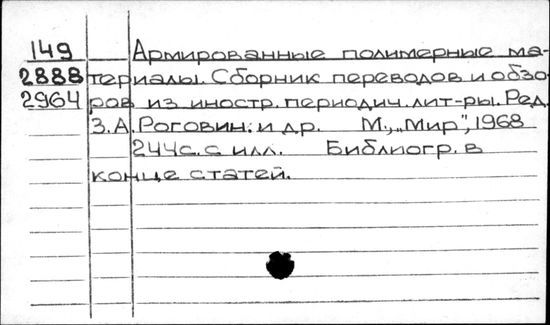 149 Армированные полимерные ма-
2888 териалы. Сборник переводов и обзо-
2964 ров из иностр. периодич. лит-ры. Ред.
З.А. Роговин. и др. М., „Мир", 1968
244с. с илл. Библиогр. в
конце статей.